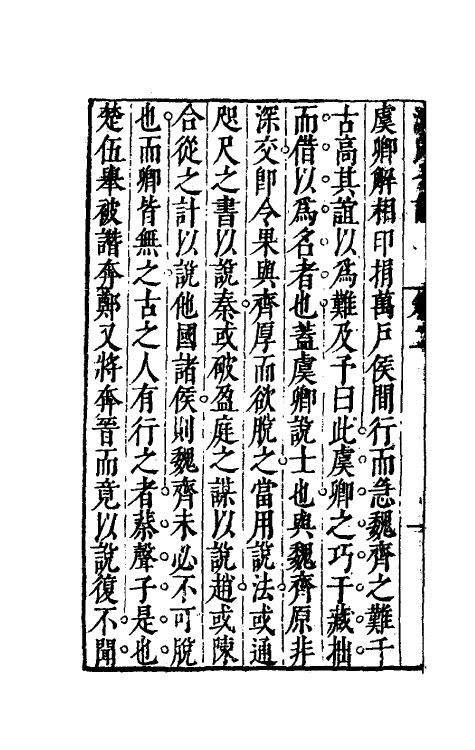 虞卿解相印捐萬戶侯間行而急魏齊之難千
古高其誼以為難及予曰此虞卿之巧于藏拙
而借以為名者也蓋虞卿說士也與魏齊原非
深交卽令果與齊厚而欲脫之當用說法或通
咫尺之書以說秦或破盈庭之謀以說趙或陳
合從之計以說他國諸侯則魏齊未必不可脫
也而卿皆無之古之人有行之者蔡聲子是也
楚伍舉被譖奔鄭又將奔晉而竟以說復不聞